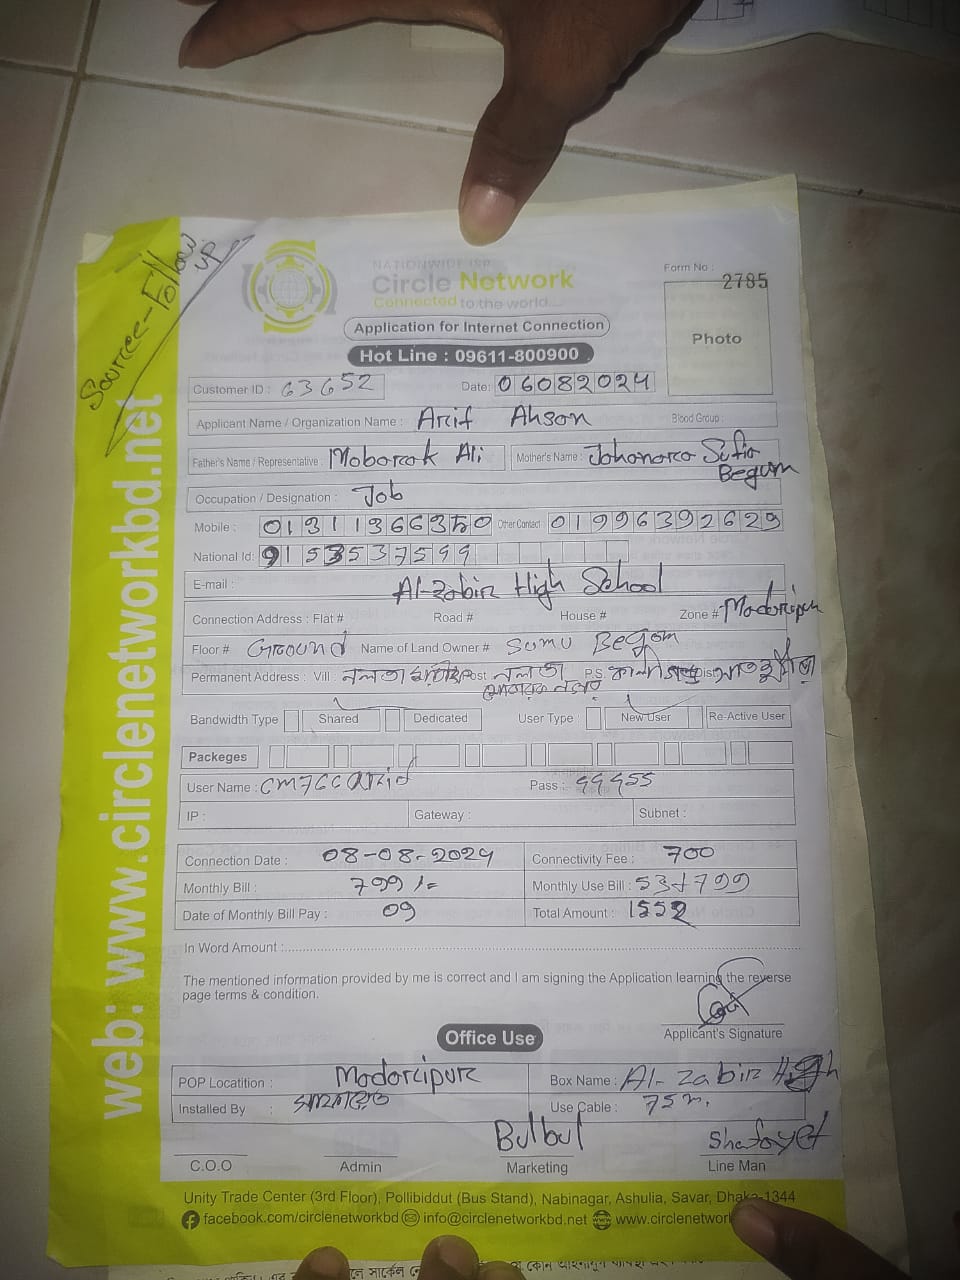 Source-Follow up
NATIONWIDE ISP
Circle Network
Connected to the world....
Form No :
2785
Application for Internet Connection
Hot Line : 09611-800900
Photo
Customer ID : 63652 Date: 06082024
Applicant Name / Organization Name : Arif Ahson Blood Group :
Father's Name / Representative : Moborok Ali Mother's Name : Johonara Sufia Begum
Occupation / Designation : Job
Mobile : 01311366350 Other Contact 01996392629
National Id: 9153537599
E-mail :
Al-Zabir High School
Connection Address : Flat # Road # House # Zone # Madaripur
Floor # Ground Name of Land Owner # Sumu Begom
Permanent Address : Vill নলতা Post নলতা P.S. কালীগঞ্জ Dist সাতক্ষীরা
মোবারক নগর
Bandwidth Type Shared Dedicated User Type : New User Re-Active User
Packeges
User Name : Pass :
IP : Gateway : Subnet :
Connection Date : 08-08-2024 Connectivity Fee : 700
Monthly Bill : 799/= Monthly Use Bill : 53+799
Date of Monthly Bill Pay : 09 Total Amount : 1552
In Word Amount :
The mentioned information provided by me is correct and I am signing the Application learning the reverse
page terms & condition.
Applicant's Signature
Office Use
POP Locatition : Madaripur Box Name : Al-Zabir High
Installed By : Use Cable : 75 m.
Bulbul Shafayet
C.O.O Admin Marketing Line Man
Unity Trade Center (3rd Floor), Pollibiddut (Bus Stand), Nabinagar, Ashulia, Savar, Dhaka-1344
facebook.com/circlenetworkbd info@circlenetworkbd.net www.circlenetwor
web: www.circlenetworkbd.net